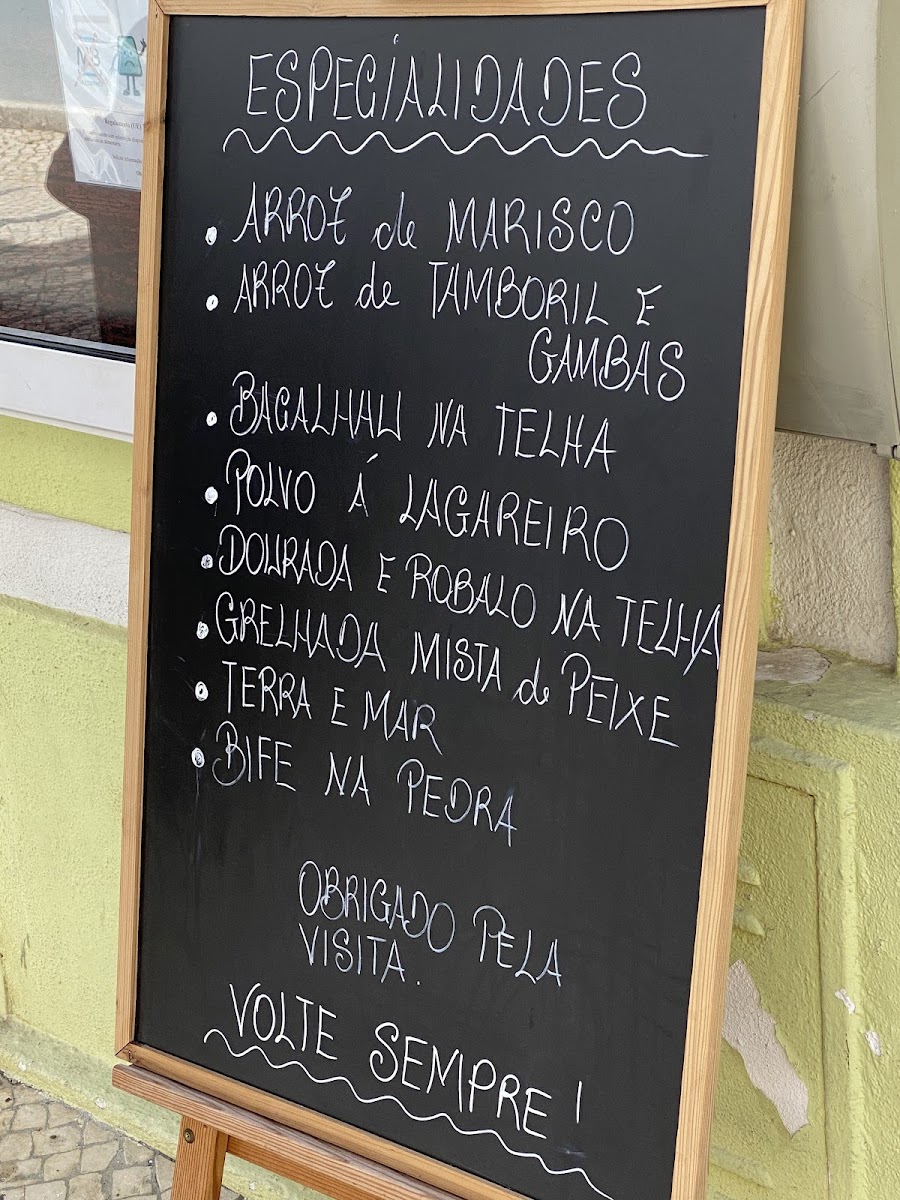 ESPECIALIDADES
• ARROZ de MARISCO
• ARROZ de TAMBORIL E
GAMBAS
• BACALHAU NA TELHA
• POLVO Á LAGAREIRO
• DOURADA E ROBALO NA TELHA
• GRELHADA MISTA de PEIXE
• TERRA E MAR
• BIFE NA PEDRA
OBRIGADO PELA
VISITA.
VOLTE SEMPRE!